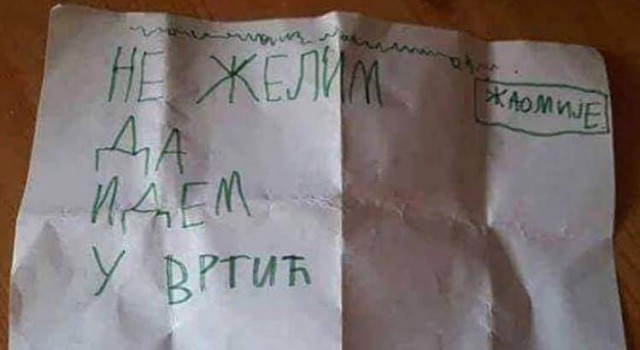 НЕ ЖЕЛИМ
ЖАОМИЈЕ
ДА
ИДЕМ
У ВРТИЋ